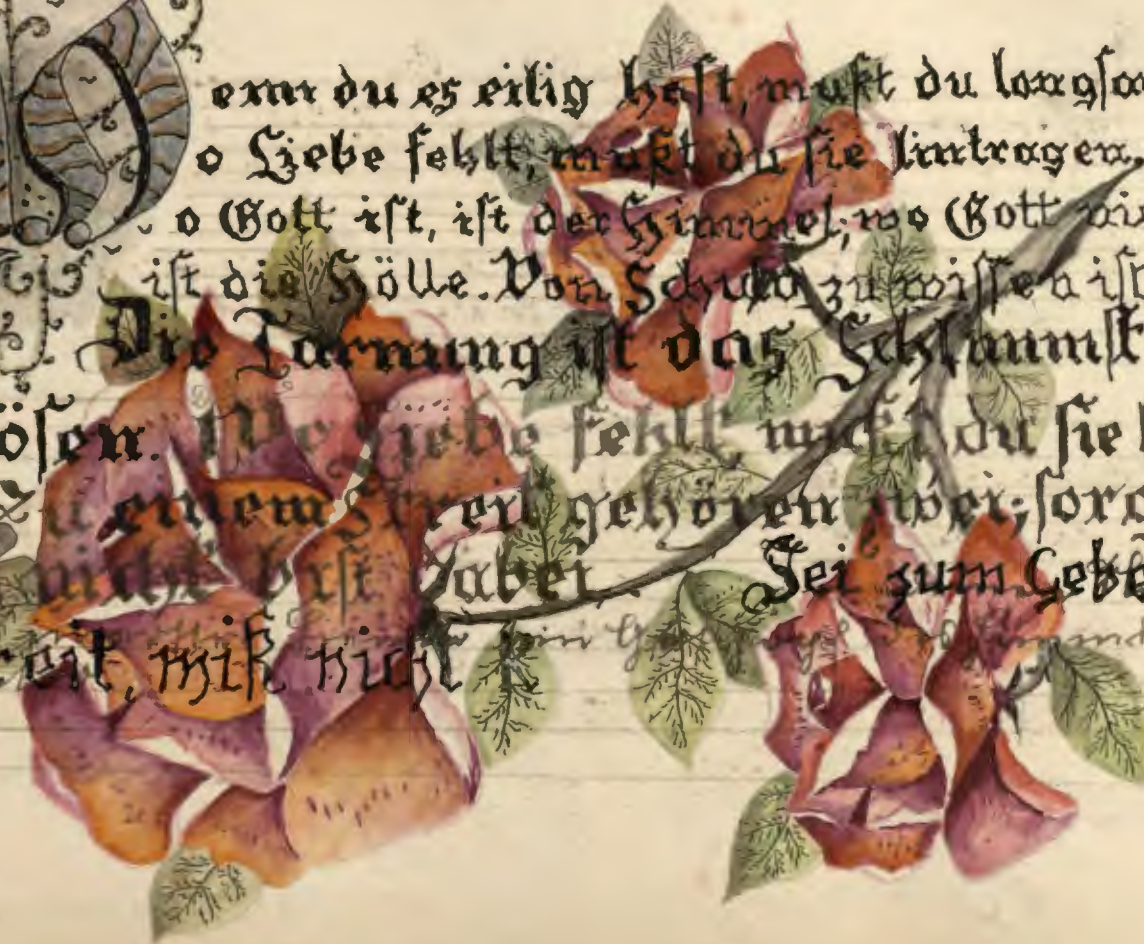 enn du es eilig hast, mußt du langsa
o Liebe fehlt, mußt du sie hintragen
o Gott ist, ist der Himmel; wo Gott ni
ist die Hölle. Von Schuld zu wissen ist
Die Tarnung ist das Schlimmst
ösen. Wo Liebe fehlt, mußt du sie
u einem Streit gehören zwei; sorg
nicht bist dabei.
Sei zum Gebe
reit, miß nicht